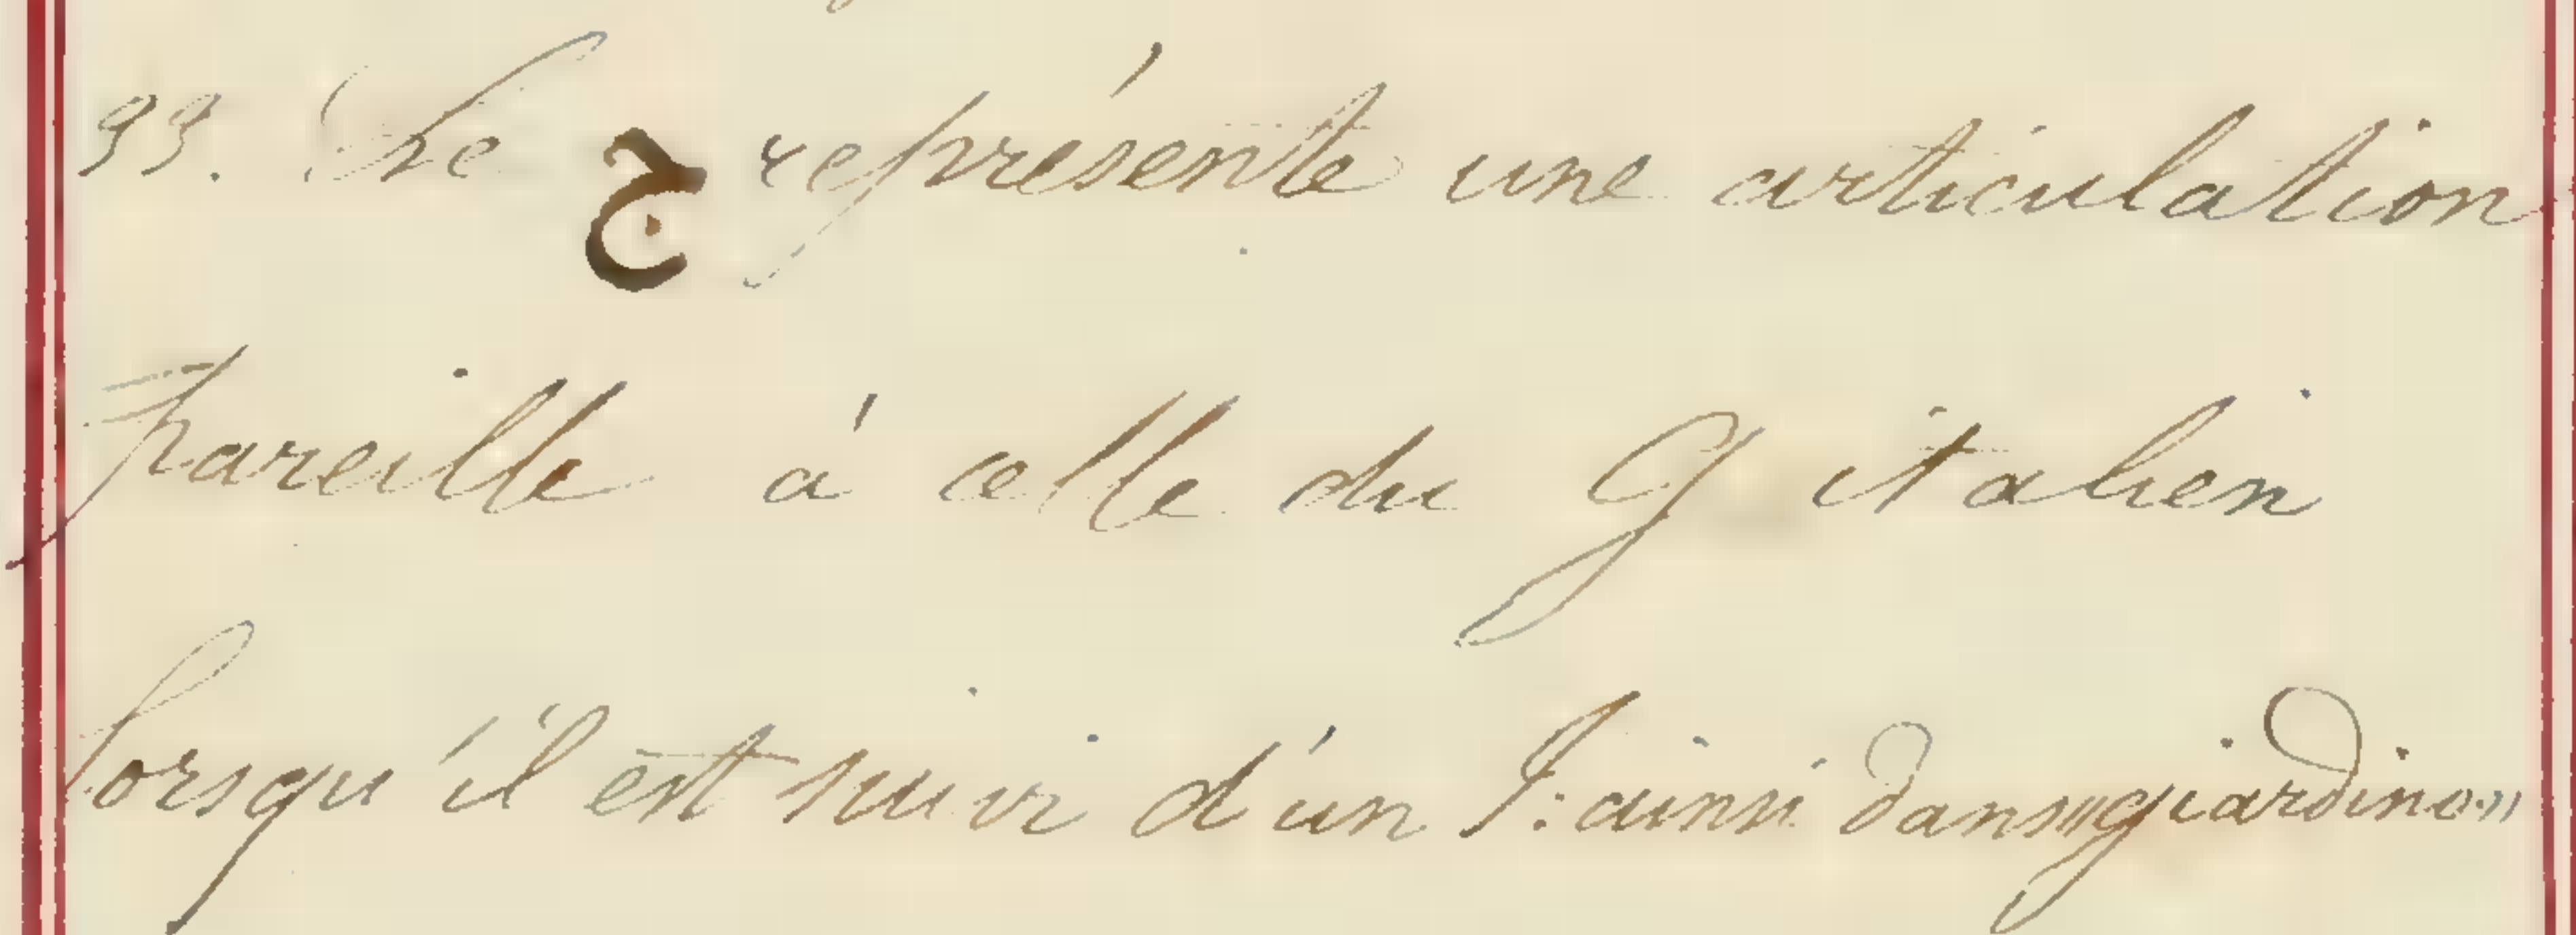 33. Le ج représente une articulation
pareille à celle du G italien
lorsqu'il est suivi d'un I: ainsi dans "giardino."